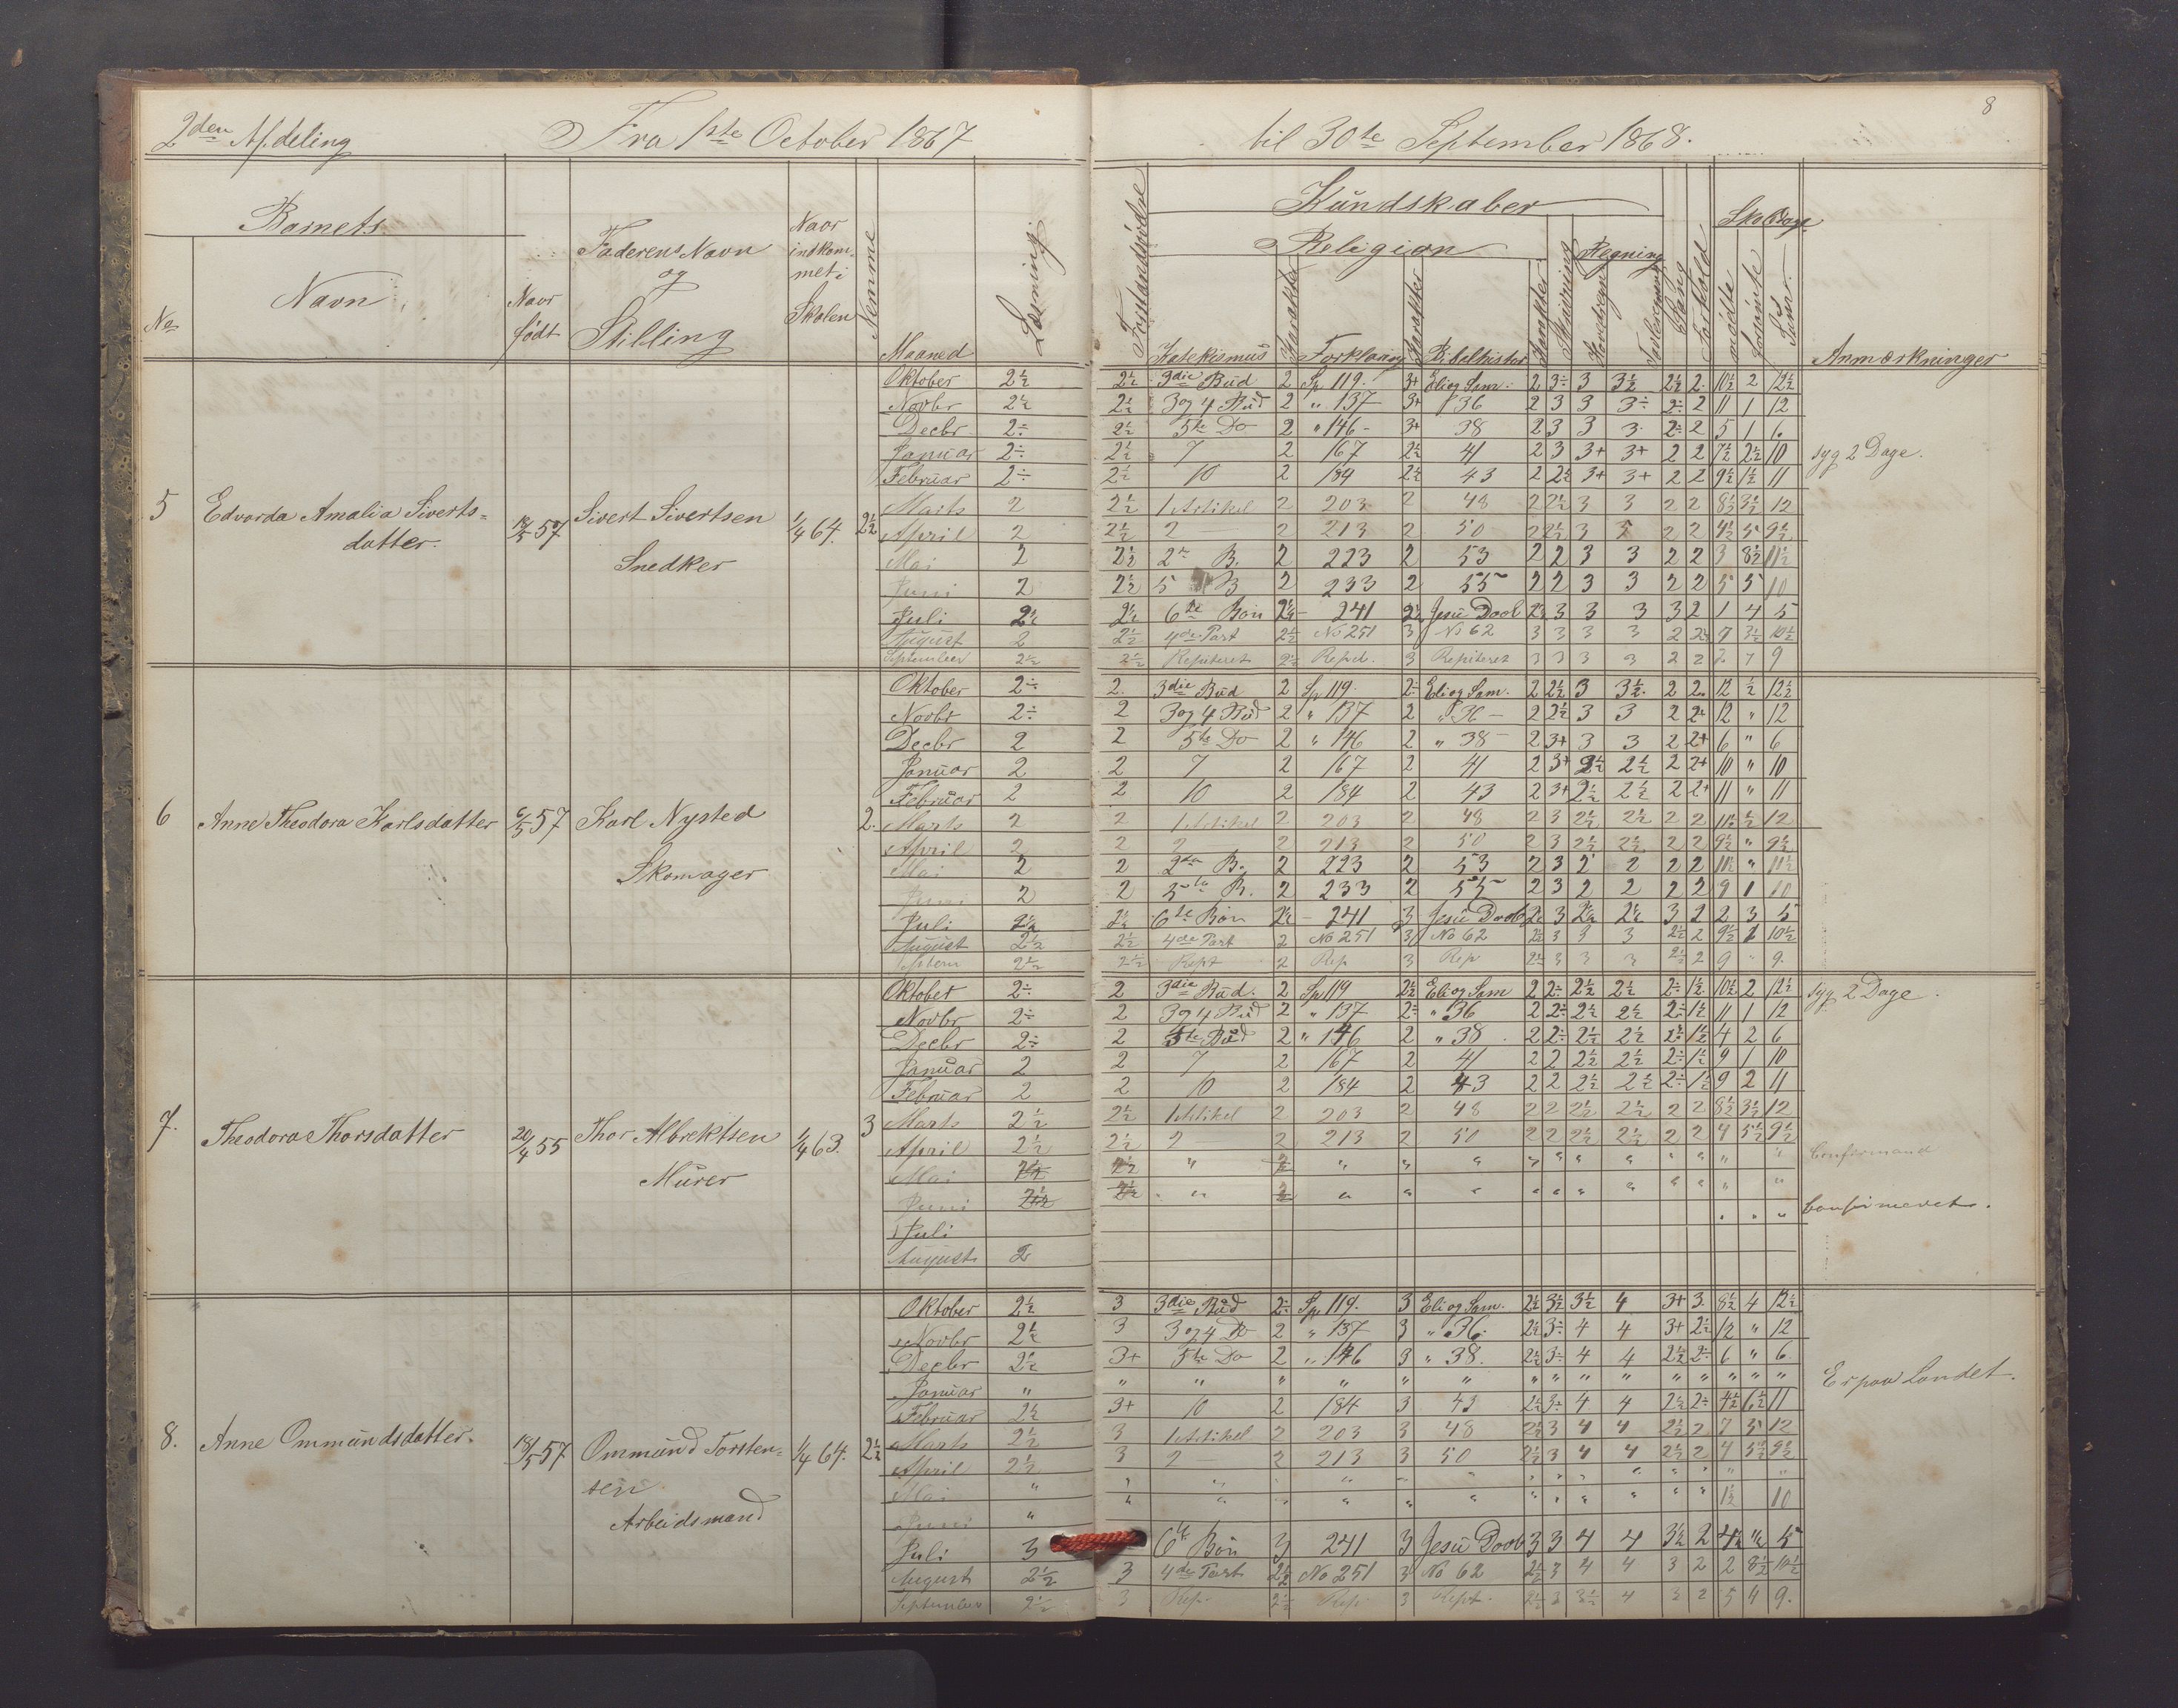 8
2den Afdeling Fra 1ste October 1867 til 30te September 1868.
Barnets
No Navn Naar født Faderens Navn og Stilling Naar indkommet i Skolen Nemme Maaned Læsning Forstandsøvelse
Kundskaber
Religion Regning Skoledage
Katekismus Karakter Forklaring Karakter Bibelhistor Karakter Skrivning Hovedregn Tavleregning Sang Forhold mødte forsømte Sum Anmærkninger
5 Edvarda Amalia Siverts=
datter. 57 Sivert Sivertsen
Snedker 1/4 64. 2½
Oktober 2½ 2½ 3die Bud 2 Sp. 119. 3+ Eli og Sam. 2 3÷ 3 3½ 2½ 2. 10½ 2 12½
Novbr 2½ 2½ 3 og 4 Bud 2 " 137 3+ " 36 2 3 3 3÷ 2÷ 2 11 1 12
Decbr 2÷ 2½ 5te Do 2 " 146 - 3+ 38 2 3 3 3. 2÷ 2 5 1 6.
Januar 2÷ 2½ 7 2 167 2½ 41 2 3 3+ 3+ 2 2 7½ 2½ 10 syg 2 Dage.
Februar 2÷ 2½ 10 2 184 2½ 43 2 2½ 3+ 3+ 2 2 9½ 1½ 11
Marts 2 2½ 1 Artikel 2 203 2 48 2 2½ 3 3 2 2 8½ 3½ 12
April 2 2½ 2 2 213 2 50 2 2½ 3 3 2 2 4½ 5 9½
Mai 2 2½ 2n B. 2 223 2 53 2 2 3 3 2 2 3 8½ 11½
Juni 2 2½ 5 B 2 233 2 55 2 2 3 3 2 2 5 5 10
Juli 2½ 2½ 6te Bøn 2½ - 241 2½ Jesu Daab 2½ 3 3 3 3 2 1 4 5
August 2 2½ 4de Part 2½ No 251 3 No 62 3 3 3 3 2 2½ 7 3½ 10½
September 2½ 2½ Repiteret 2½ Repet. 3 Repiteret 3 3 3 3 2 2 2 7 9
6 Anne Theodora Karlsdatter 6/5 57 Karl Nysted
Skomager 2.
Oktober 2÷ 2. 3die Bud 2 Sp 119. 2÷ Eli og Sam. 2 2½ 3 3½. 2 2. 12 ½ 12½
Novbr 2÷ 2 3 og 4 Bud 2 " 137 2 " 36 - 2 2½ 3 3 2 2+ 12 " 12
Decbr 2 2 5te Do 2 " 146 2 " 38 - 2 3+ 3 3 2 2+ 6 " 6
Januar 2 2 7 2 167 2 41 2 3+ 2½ 2½ 2 2+ 10 " 10
Februar 2 2 10 2 184 2 43 2 3+ 2½ 2½ 2 2+ 11 " 11
Marts 2 2 1 Artikel 2 203 2 48 2 3 2½ 2½ 2 2 11½ ½ 12
April 2 2 2 2 213 2 50 2 3 2½ 2½ 2 2 9½ " 9½
Mai 2 2 2den B. 2 223 2 53 2 3 2 2 2 2 11½ " 11½
Juni 2 2 5te B. 2 233 2 55 2 3 2 2 2 2 9 1 10
Juli 2½ 2½ 6te Bøn 2½ - 241 3 Jesu Daab 2½ 3 2½ 2½ 3 2 2 3 5
August 2½ 2½ 4de Part 2 No 251 3 No 62 2½ 3 3 3 2½ 2 9½ 1 10½
Septem 2½ 2½ Rept 2 Rep 3 Rep 2½ 3 3 3 2½ 2 9 " 9.
7. Theodora Thorsdatter 20/4 55 Thor Albrektsen
Murer 1/4 63. 3
Oktober 2÷ 2 3die Bud. 2 Sp 119 2½ Eli og Sam 2 2÷ 2½ 2½ 2÷ 1½ 10½ 2 12½ syg 2 Dage.
Novbr 2÷ 2 3 og 4 Bud 2 " 137 2÷ " 36 2 2÷ 2½ 2½ 2÷ 1½ 11 1 12
Decbr 2÷ 2 5te Bud 2 " 146 2 " 38. 2 2÷ 2½ 2½ 2÷ 1½ 4 2 6
Januar 2 2 7 2 167 2 41 2 2 2½ 2½ 2÷ 1½ 9 1 10
Februar 2 2 10 2 184 2 43 2 2 2½ 2½ 2÷ 1½ 9 2 11
Marts 2½ 2½ 1 Artikel 2 203 2 48 2 2 2½ 2½ 2 2 8½ 3½ 12
April 2½ 2½ 2 - 2 213 2 50 2 2 2½ 2½ 2 2 4 5½ 9½
Mai 2½ 2½ " 2 " " " " " " " " " " " Confirmand
Juni 2½ 2½ " 2 " " " " " " " " " " "
Juli " " " Confirmeret.
August 2
8. Anne Ommundsdatter. 18/5 57 Ommund Torsten=
sen
Arbeidsmand 1/4 64. 2½
Oktober 2½ 3 3die Bud 2÷ Sp. 119. 3 Eli og Sam. 2½ 3½ 3½ 4 3+ 3. 8½ 4 12½
Novbr 2½ 3 3 og 4 Do 2 " 137 3 " 36. 2½ 3÷ 4 4 3+ 2½ 12 " 12
Decbr 2½ 3+ 5te Do 2 " 146 3 " 38. 2½ 3÷ 4 4 2½ 2÷ 6 " 6
Januar " " " " " " " " " " " " " " " " Er paa Landet.
Februar 2½ 3+ 10 2 184 3 43 2½ 3÷ 4 4 2½ 2÷ 4½ 6½ 11
Marts 2½ 3 1 Artikel 2 203 3 48 2½ 3 4 4 2½ 2 7 5 12
April 2½ 3 2 - 2 213 3 50 2½ 3 4 4 2½ 2 4 5½ 9½
Mai " " " " " " " " " " " " " " "
Juni " " " " " " " " " " " " " 1½ 10
Juli 3 6te Bøn 3 241 3 Jesu Daab 3 3 4 4 3½ 2 4½ "½ 5
August 2½ 3 4de Part 2½ No 251 3 No 62 2½ 3 4 4 3 2 2 8½ 10½
September 2½ 3 Rep. 2½ Rep 3 Rept. 2½ 3 3½ 4 3 2 5 4 9.